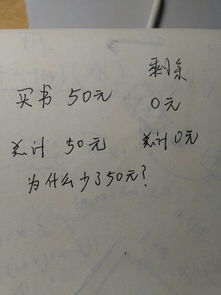 剩余
买书 50元 0元
总计 50元 总计 0元
为什么少了50元?